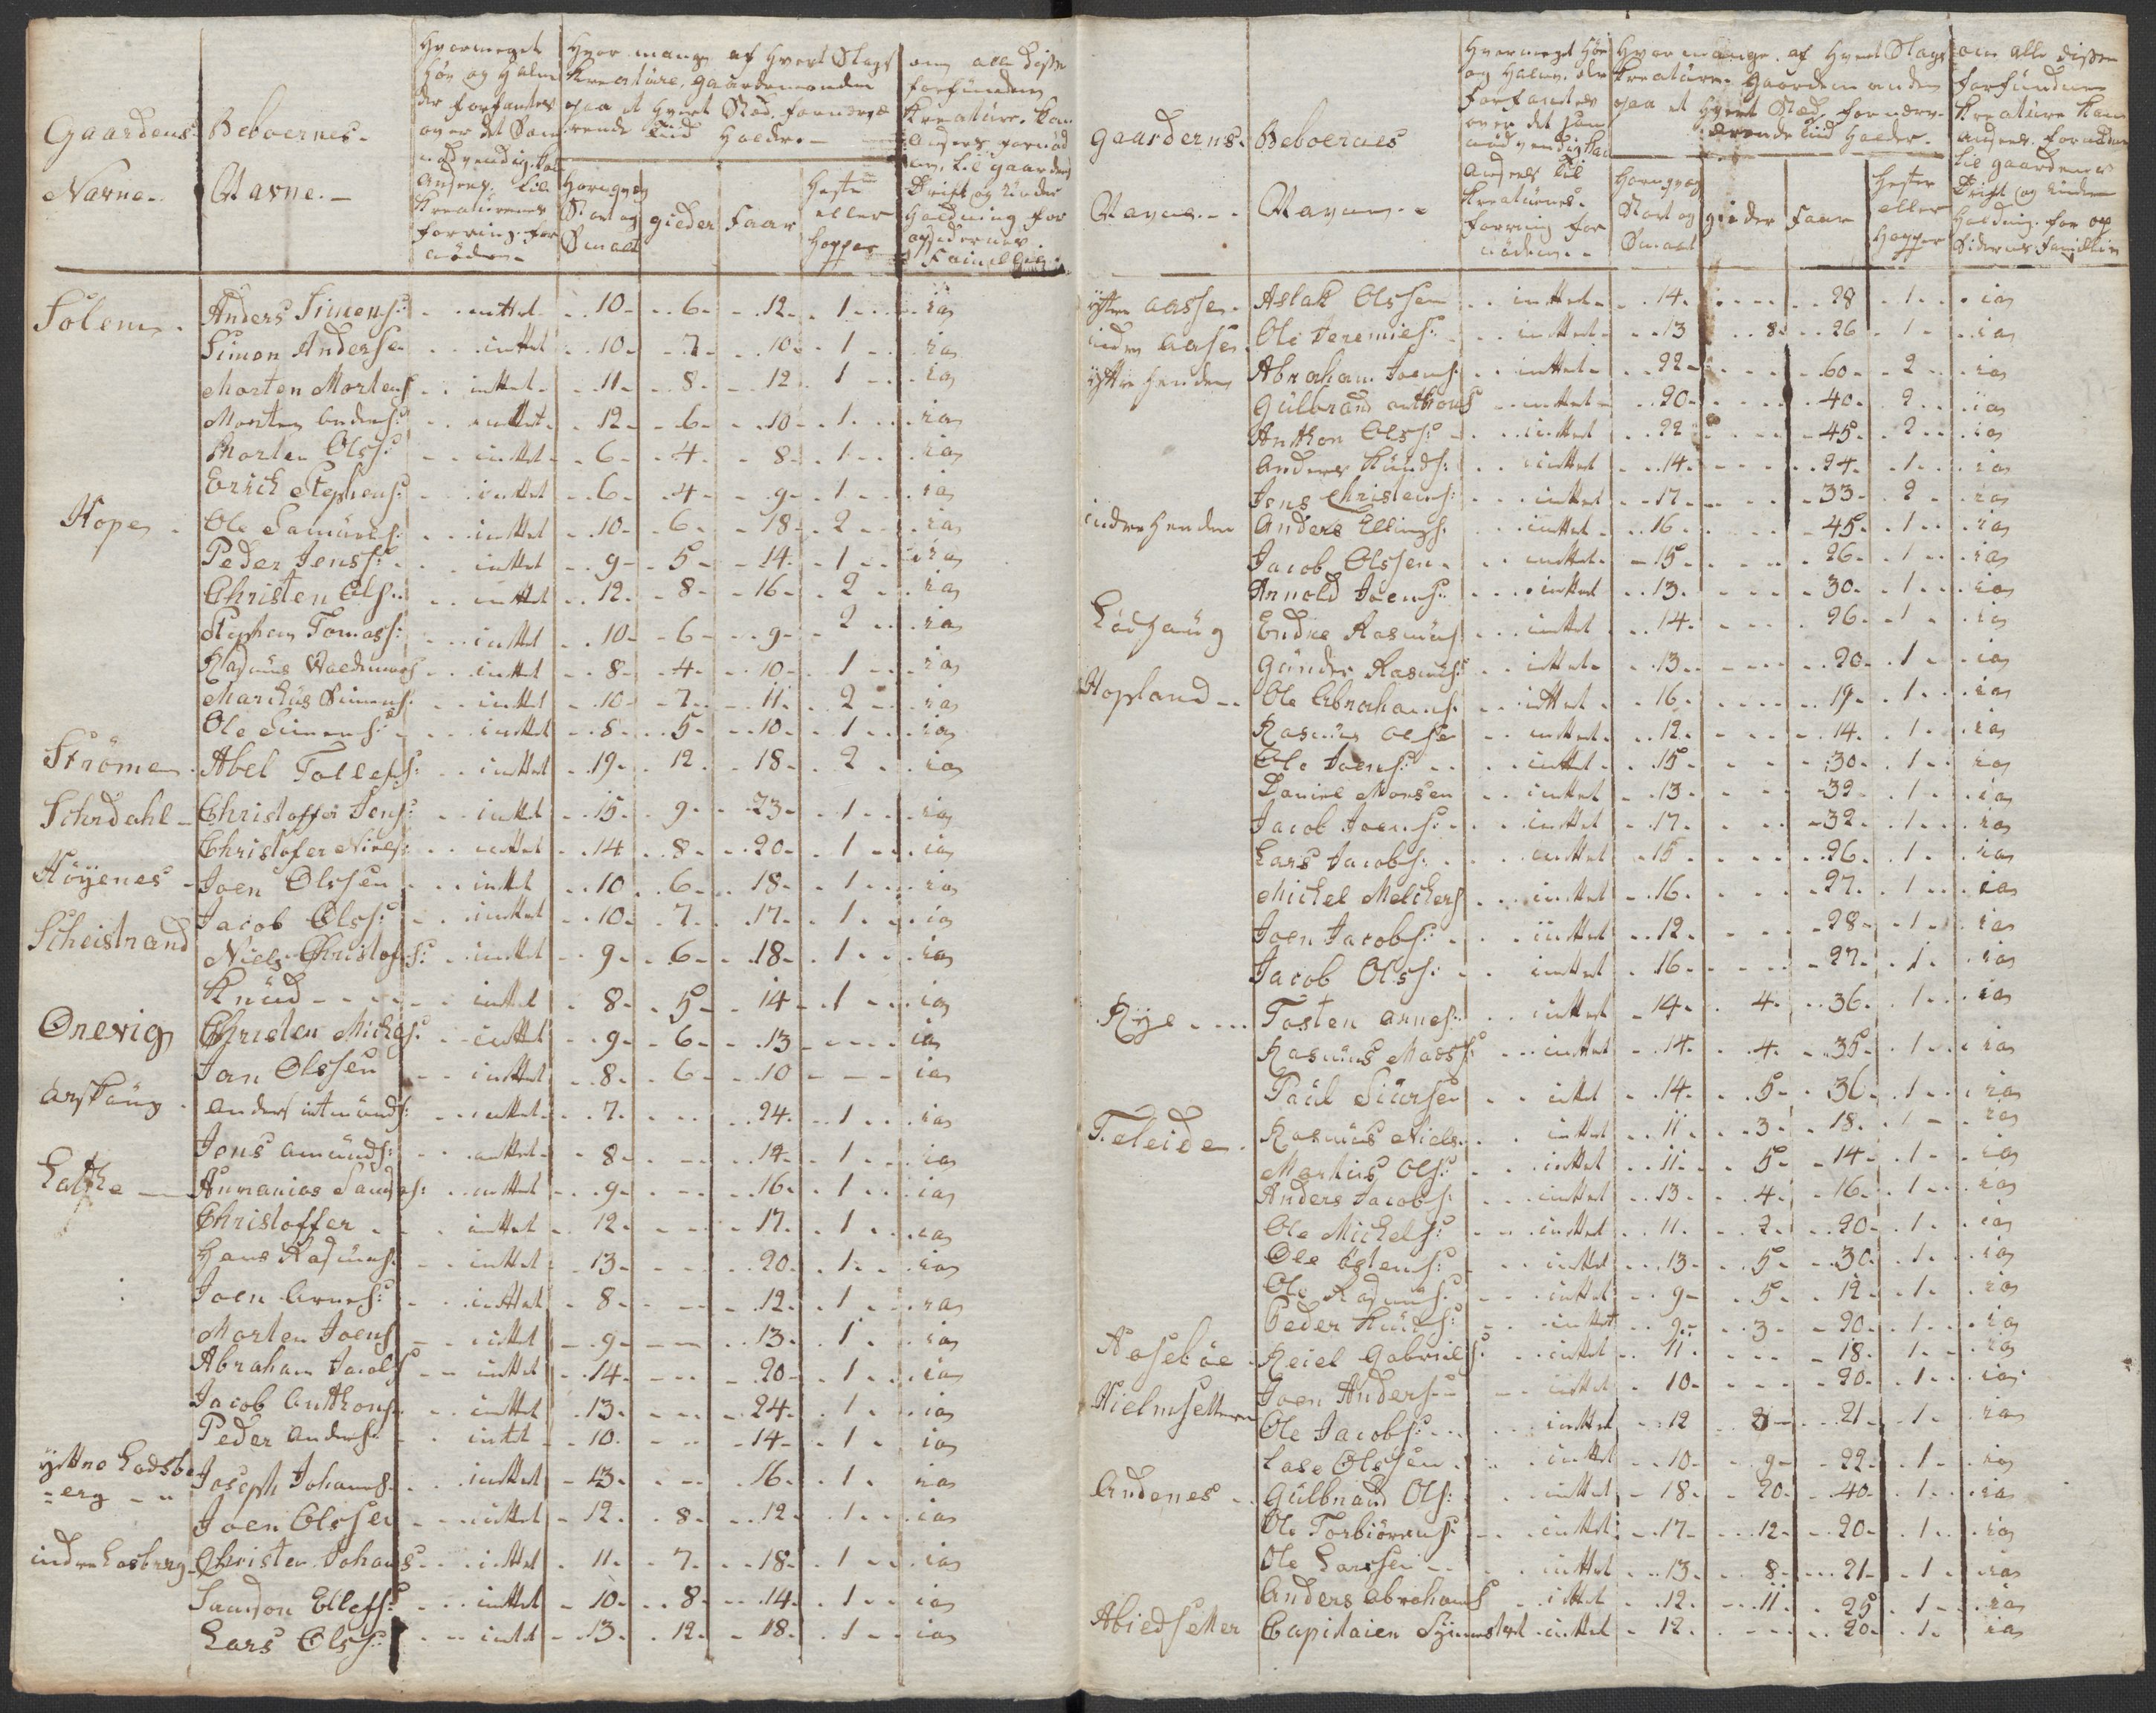 Gaardens Navne.
Beboernes Navne.
Hvormeget Høe og Halm der forfantes over det Som nødvendig kan Ansees til Kreaturenes forring fornøden
Hvor mange af hvert Slags Kreature, gaardmanden paa et hvert Stæd fornærværende Tiid holder.
Hornqvæg Stort og Smaat
gieder
Faar
Heste eller Hopper
om alle disse forfundne Kreature kan Ansees fornøden til gaardens Drift og Under Holdning for opsidernes Familie
Solem. Anders Simens: inttet 10 6 12 1 ia
Simon Andersen inttet 10 7 10 1 ia
Morten Mortens inttet 11 8 12 1 ia
Morten Anders: inttet 12 6 10 1 ia
Morten Olss: inttet 6 4 8 1 ia
Erick Stephens: inttet 6 4 9 1 ia
Hope Ole Samuels: inttet 10 6 18 2 ia
Peder Jenss: inttet 9 5 14 1 ia
Christen Ols: inttet 12 8 16 2 ia
Stephen Tomass: inttet 10 6 9 2 ia
Rasmus inttet 8 4 10 1 ia
Marckus Simens: inttet 10 7 11 2 ia
Ole Simens: inttet 8 5 10 1 ia
Strömen Abel Tollefs: inttet 19 12 18 2 ia
Schrdahl Christoffer Jens: inttet 15 9 23 1 ia
Christofer Niels: inttet 14 8 20 1 ia
Höyenes Joen Olssen inttet 10 6 18 1 ia
Scheistrand Jacob Olss: inttet 10 7 17 1 ia
Niels Christofs: inttet 9 6 18 1 ia
Knud inttet 8 5 14 1 ia
Onevig Christen Michels: inttet 9 6 13 ia
Jan Olssen inttet 8 6 10 ia
Anders inttet 7 24 1 ia
Jens Amunds: inttet 8 14 1 ia
Annanias inttet 9 16 1 ia
Christoffer inttet 12 17 1 ia
Hans Rasmus: inttet 13 20 1 ia
Joen Arnes: inttet 8 12 1 ia
Morten Joens inttet 9 13 1 ia
Abraham Jacobs inttet 14 20 1 ia
Jacob Anthons inttet 13 24 1 ia
Peder Anders: inttet 10 14 1 ia
yttre Ladsberg Joseph Johans inttet 13 16 1 ia
Joen Olssen inttet 12 8 12 1 ia
indre Lasberg Christen Johans inttet 11 7 18 1 ia
Samson Ellefs: inttet 10 8 14 1 ia
Lars Olss: inttet 13 12 18 1 ia
Gaardens Navne.
Beboernes Navne.
Hvormeget Høe og Halm der forfantes over det som nødvendig kan Ansees til Kreaturenes forring fornøden.
Hvor mange af hvert Slags Kreature Gaardemanden paa et hvert Stæd fornærværende tiid holder.
Hornqvæg Stort og Smaat
gieder
Faar
Hester eller Hopper
om alle disse forfundne Kreature kan Ansees fornøden til gaardenes Drift og under Holdning for opSidernes Familie
yttre aassen Aslak Olssen inttet 14 28 1 ia
indre Aasen Ole Jeremies: inttet 13 8 26 1 ia
yttre Henden Abraham Joens: inttet 22 60 2 ia
Gulbrand Anthons inttet 20 40 2 ia
Anthon Olss: inttet 22 45 2 ia
Anders Knuds: inttet 14 24 1 ia
Jens Christens: inttet 17 33 2 ia
indre Henden Anders Ellings. inttet 16 45 1 ia
Jacob Olssen inttet 15 26 1 ia
Arnold Joens: inttet 13 30 1 ia
Endre Rasmus inttet 14 26 1 ia
Gunder Rasmus: inttet 13 20 1 ia
Hopland Ole Abrahams. inttet 16 19 1 ia
Rasmus Olsen inttet 12 14 1 ia
Ole Joens: inttet 15 30 1 ia
Daniel Monsen inttet 13 32 1 ia
Jacob Joens: inttet 17 32 1 ia
Lars Jacobs: inttet 15 26 1 ia
Michel Melchers inttet 16 27 1 ia
Joen Jacobs: inttet 12 28 1 ia
Jacob Olss: inttet 16 27 1 ia
Rye Tosten Arnes: inttet 14 4 36 1 ia
Rasmus Mass: inttet 14 4 35 1 ia
Paul Siursen inttet 14 5 36 1 ia
Teleide Rasmus Niels. inttet 11 3 18 1 ia
Martius Ols: inttet 11 5 14 1 ia
Anders Jacobs: inttet 13 4 16 1 ia
Ole Michels: inttet 11 2 20 1 ia
Ole Östens: inttet 13 5 30 1 ia
Ole Rasmus: inttet 9 5 12 1 ia
Peder Knuds: inttet 9 3 20 1 ia
Aaseböe Reiel Gabriels: inttet 11 18 1 ia
Hielmsetteren Joen Andersen inttet 10 20 1 ia
Ole Jacobs: inttet 12 21 1 ia
Lase Olssen inttet 10 9 22 1 ia
Andenes Gulbrand Ols: inttet 18 20 40 1 ia
Ole Torbiörens: inttet 17 12 20 1 ia
Ole Larssen inttet 13 8 21 1 ia
Anders Abrahams inttet 12 11 25 1 ia
Capitaien inttet 12 20 1 ia